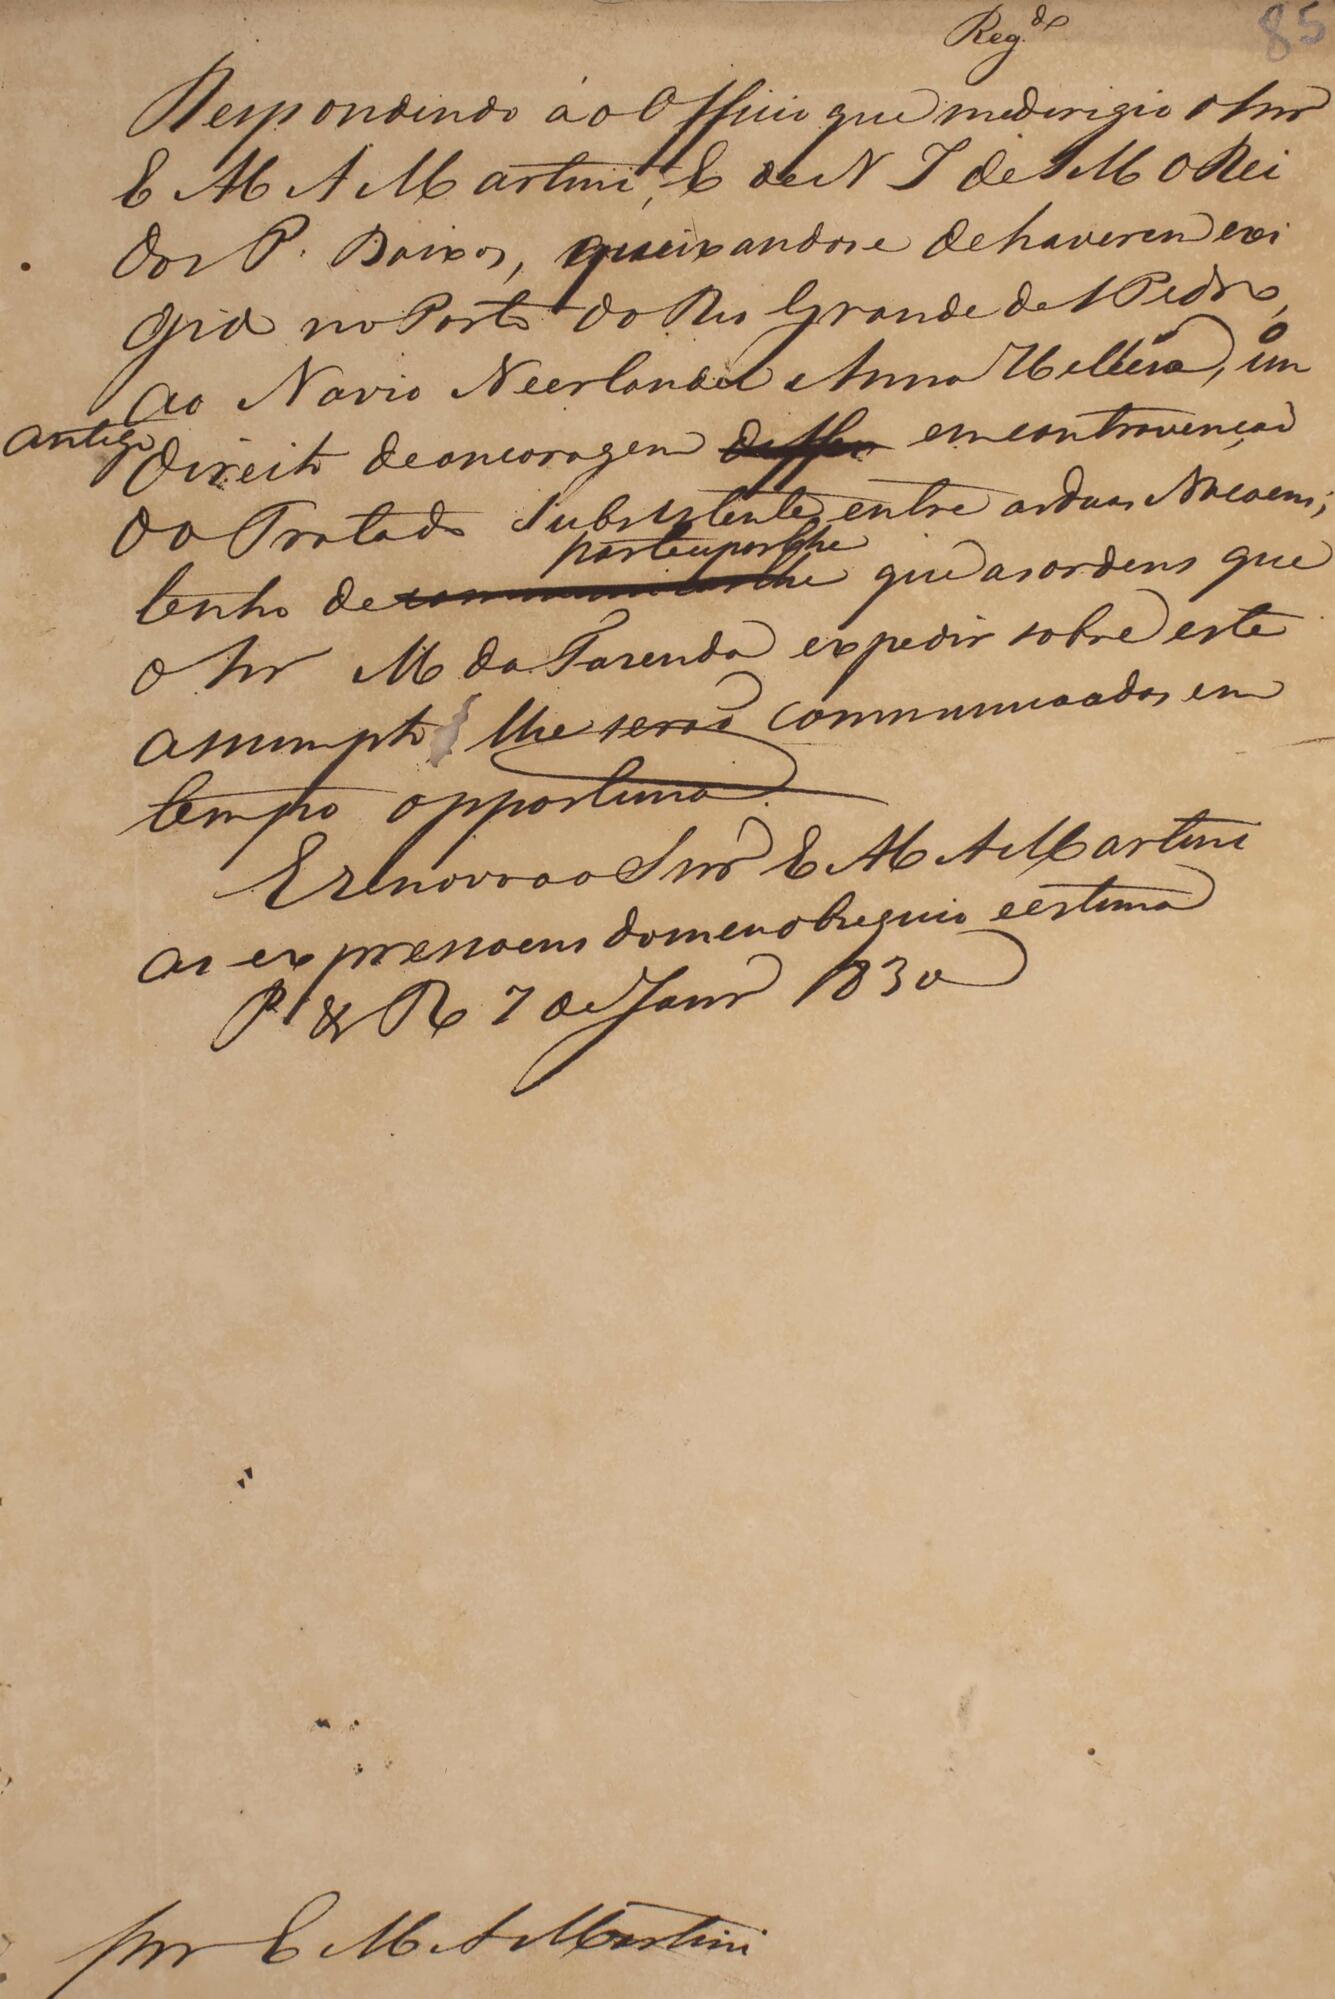 Reg.do
85
Respondendo áo Officio que me derigio o Snr
E M A Martini, E de N I de S M O Rei
dos P. Baixos, queixandose de haverem exi
gido no Porto do Rio Grande de S Pedro,
ao Navio Neerlandez Anna Hellena, um
antigo direito de ancoragem em contravençaõ
do Tratado subsistente entre as duas Nacoens;
participarlhe
tenho de communicarlhe que as ordens que
o Snr M da Fazenda expedir sobre este
assumpto lhe seraõ communicadas em
tempo opportuno.
E renovo ao Snr E M A Martini
as expressoens do meu obsequio e estima
P. & R 7 de Janr 1830
Snr E M A Martini